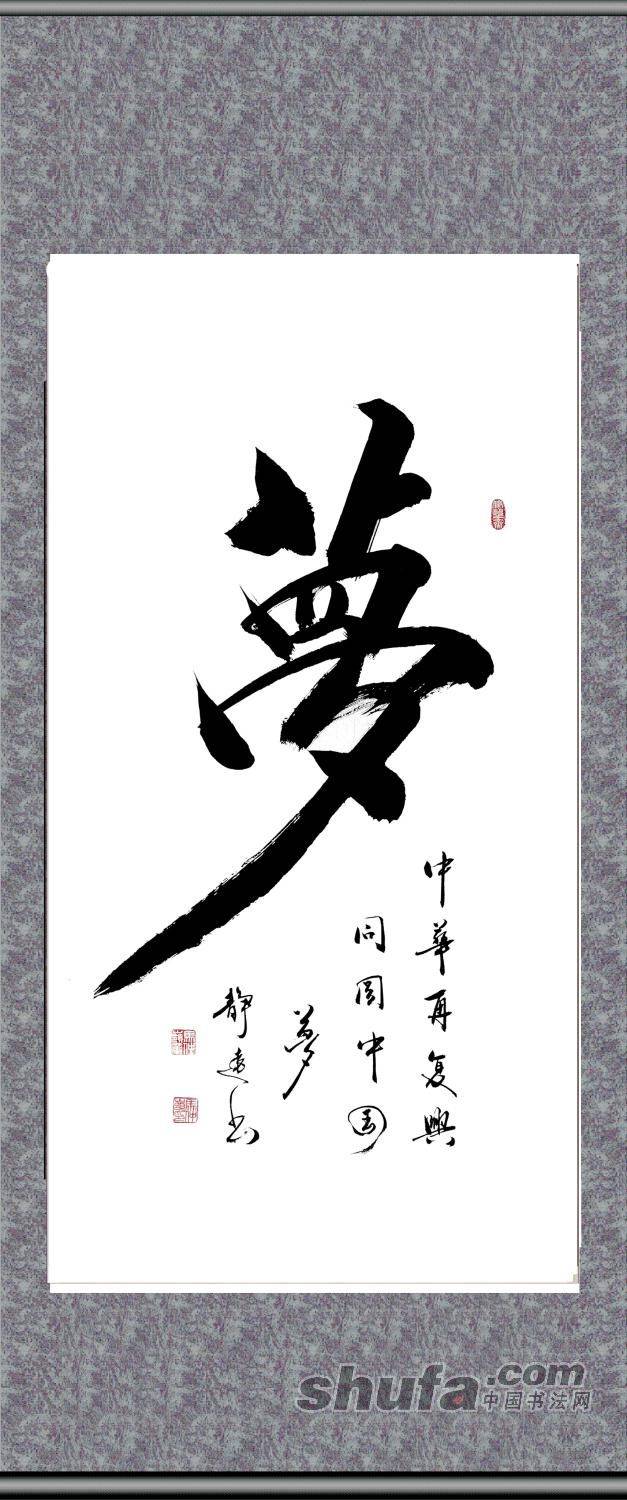 夢
中華再复興
同圓中国
夢
静遠书
shufa.com
中国书法网